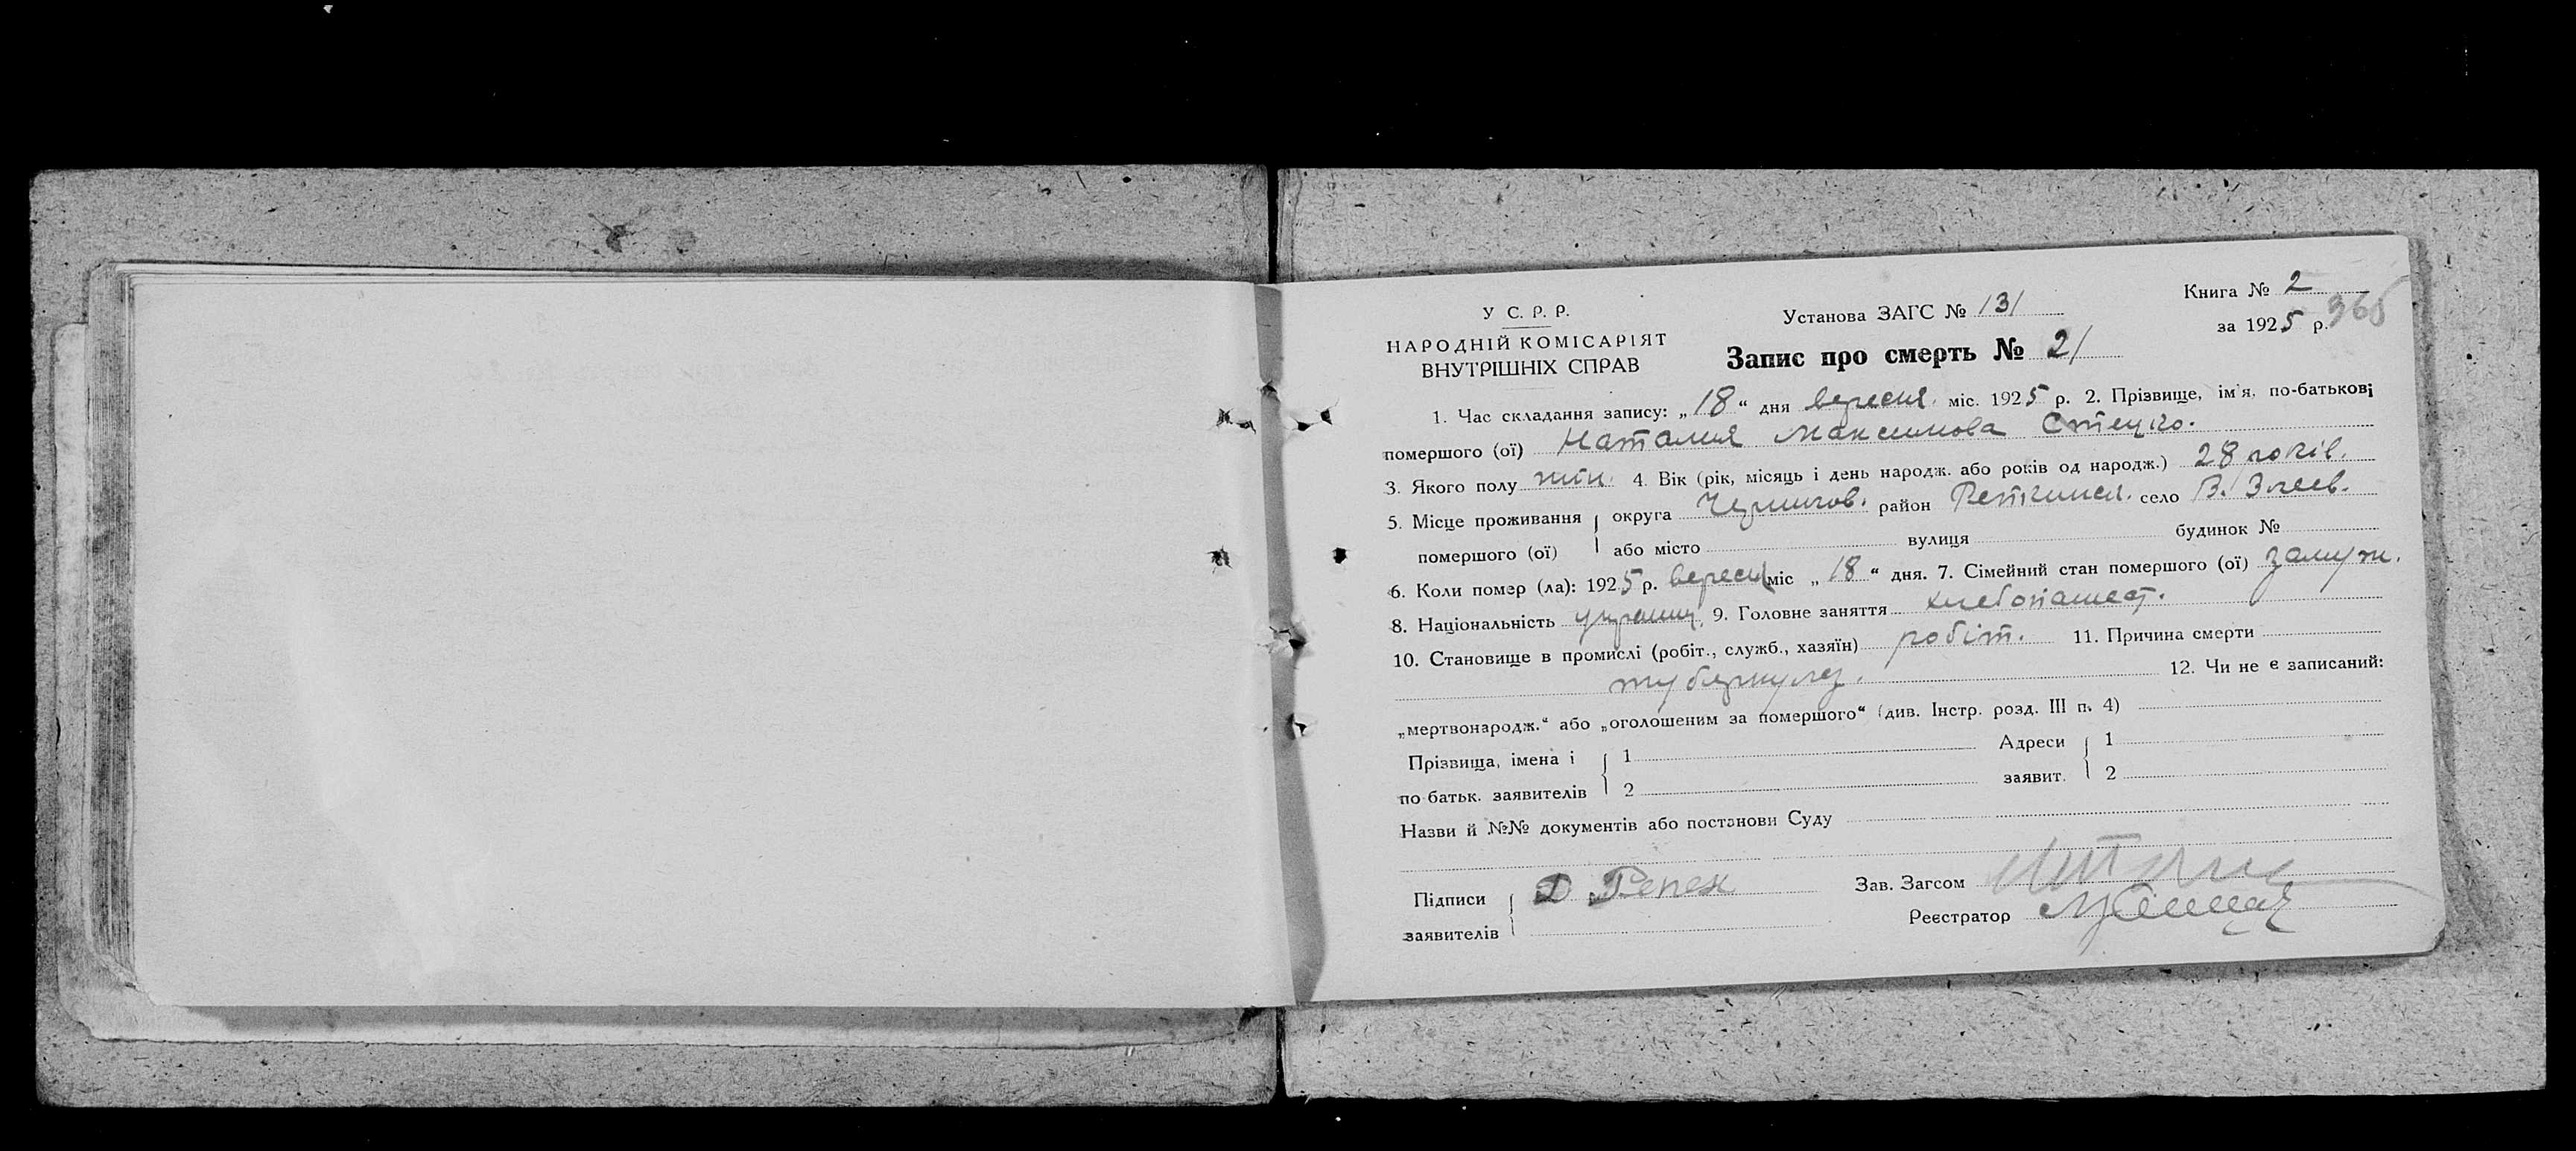 У С. Р. Р.
НАРОДНІЙ КОМІСАРІЯТ
ВНУТРІШНІХ СПРАВ
Установа ЗАГС № 131
Запис про смерть № 21
Книга № 2
за 1925 р.
365
1. Час складання запису: „18“ дня вересня міс. 1925 р. 2. Прізвище, ім'я, по-батькові
помершого (ої) Наталия Максимова Стецко.
3. Якого полу жін. 4. Вік (рік, місяць і день народж. або років од народж.) 28 років.
5. Місце проживання округа Чернигов. район Репкинск. село В. Злеев.
помершого (ої) або місто вулиця будинок №
6. Коли помер (ла): 1925 р. вересня міс „18“ дня. 7. Сімейний стан помершого (ої) замуж.
8. Національність 9. Головне заняття хлебопашест.
10. Становище в промислі (робіт., служб., хазяїн) робіт. 11. Причина смерти
туберкулез. 12. Чи не є записаний:
„мертвонародж.“ або „оголошеним за помершого“ (див. Інстр. розд. III п. 4)
Прізвища, імена і 1 Адреси 1
по батьк. заявителів 2 заявит. 2
Назви й №№ документів або постанови Суду
Підписи Д Репех Зав. Загсом
заявителів Реєстратор